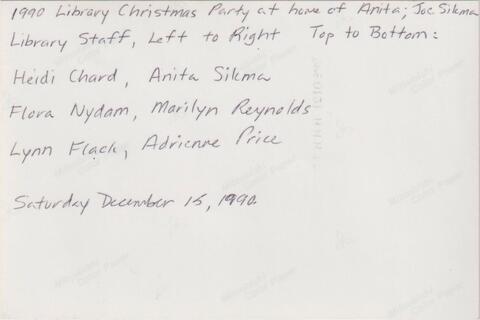 1990 Library Christmas Party at home of Anita; Joe Sikma
Library Staff, Left to Right Top to Bottom:
Heidi Chard, Anita Sikma
Flora Nydam, Marilyn Reynolds
Lynn Flack, Adrienne Price
Saturday December 15, 1990